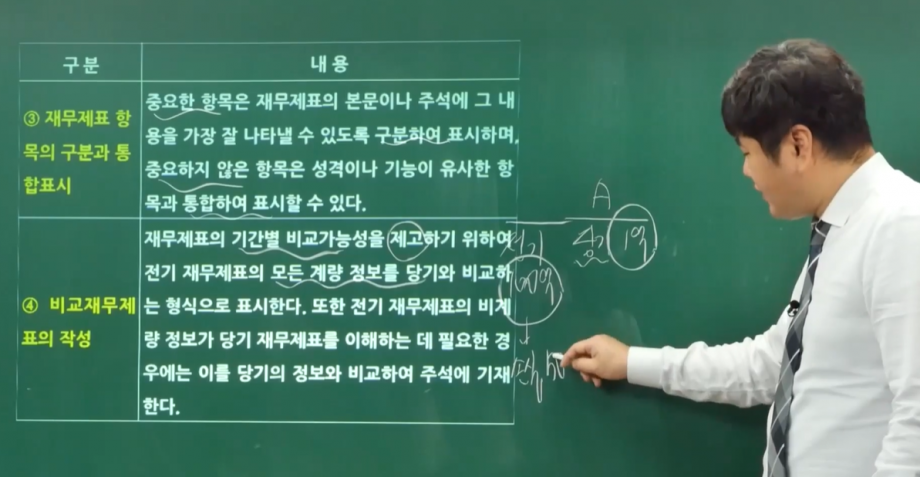 구분
내용
③ 재무제표 항
목의 구분과 통
합표시
중요한 항목은 재무제표의 본문이나 주석에 그 내
용을 가장 잘 나타낼 수 있도록 구분하여 표시하며,
중요하지 않은 항목은 성격이나 기능이 유사한 항
목과 통합하여 표시할 수 있다.
④ 비교재무제
표의 작성
재무제표의 기간별 비교가능성을 제고하기 위하여
전기 재무제표의 모든 계량 정보를 당기와 비교하
는 형식으로 표시한다. 또한 전기 재무제표의 비계
량 정보가 당기 재무제표를 이해하는 데 필요한 경
우에는 이를 당기의 정보와 비교하여 주석에 기재
한다.
A
1억
100억
손실 50